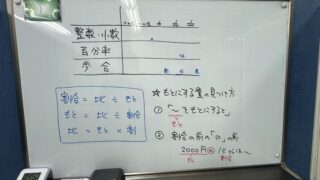 整数・小数
百分率
歩合
割合 = 比 ÷ もと
もと = 比 ÷ 割合
比 = もと × 割
☆ もとにする量の見つけ方
① 「〜をもとにすると」
もと
② 割合の前の「の」の前
2000円の 15%は〜
もと 割合